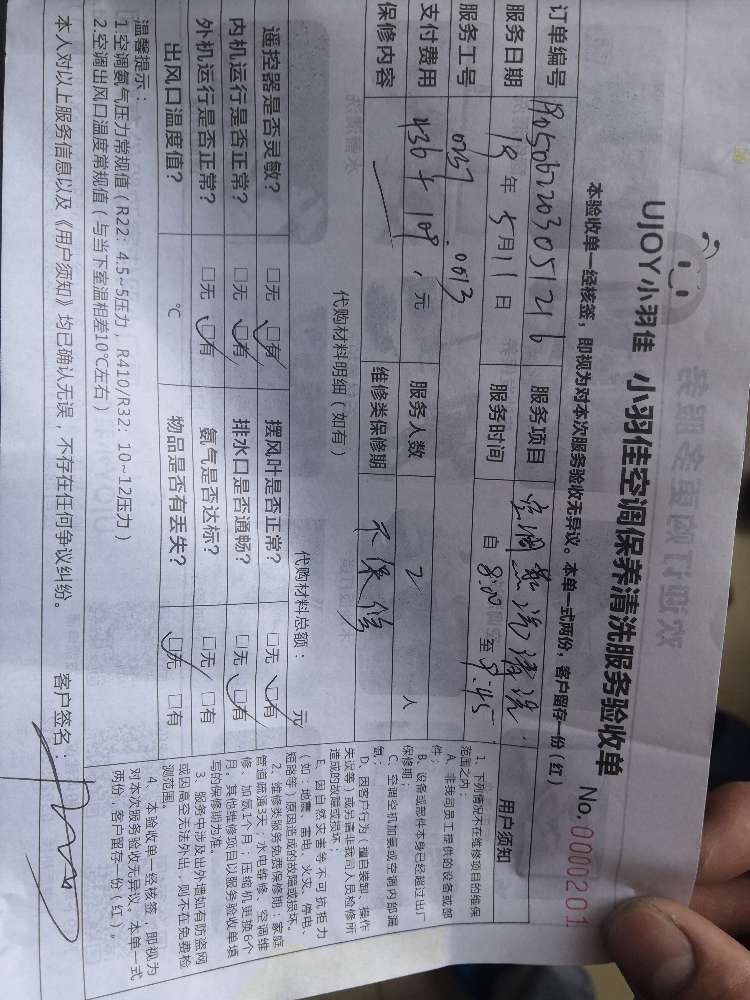 UJOY小羽佳 小羽佳空调保养清洗服务验收单 No.0000201
本验收单一经核签，即视为对本次服务验收无异议。本单一式两份，客户留存一份（红）
订单编号 服务项目
服务日期 18年5月11日 服务时间 自8:00至9:45
服务工号 0237 . 0013
支付费用 436+109，元 服务人数 2 人
保修内容 维修类保修期 不保修
代购材料明细（如有） 代购材料总额： 元
遥控器是否灵敏？ □无 □有 摆风叶是否正常？ □无 □有
内机运行是否正常？ □无 □有 排水口是否通畅？ □无 □有
外机运行是否正常？ □无 □有 氨气是否达标？ □无 □有
出风口温度值？ ℃ 物品是否有丢失？ □无 □有
温馨提示：
1.空调氨气压力常规值（R22：4.5~5压力，R410/R32：10~12压力）
2.空调出风口温度常规值（与当下室温相差10℃左右）
本人对以上服务信息以及《用户须知》均已确认无误，不存在任何争议纠纷。 客户签名：
用户须知
1、下列情况不在维修项目的维保
范围之内
A、非我司员工提供的设备或部
件；
B、设备或部件本身已经超过出厂
保修期；
C、空调空机加氨或空调内部漏
氨
D、因客户行为（擅自装卸、操作
失误等）或另请非我司人员检修所
造成的故障或损坏
E、因自然灾害等不可抗拒力
（如：地震、雷电、火灾、停电、
短路等）原因造成的故障或损坏。
2、维修类服务免费保修期：家庭
管道疏通3天；水电维修、空调维
修、加氨1个月；压缩机更换6个
月。其他维修项目以服务验收单填
写的保修期为准。
3、服务中涉及出外墙如有防盗网
或因高空无法外出，则不在免费检
测范围。
4、本验收单一经核签，即视为
对本次服务验收无异议。本单一式
两份，客户留存一份（红）。